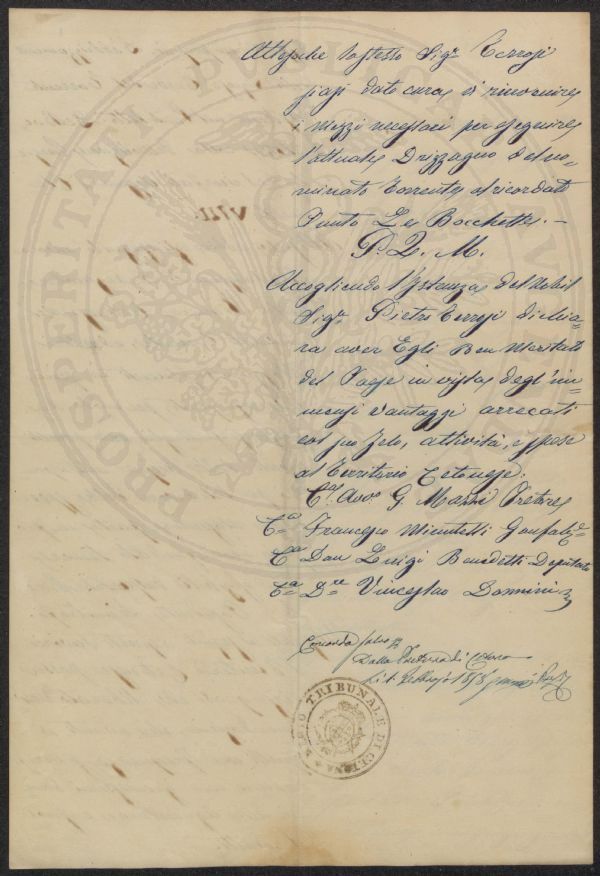 Attesoche lo stesso Sig.r Terrosi
siasi dato cura di rinvenire
i mezzi necessari per eseguire
l'attuale Drizzagno del no=
minato Torrente al ricordato
Punto Le Bocchette. —
P. Q. M.
Accogliendo l'Istanza del Nobil
Sig.r Pietro Terrosi dichia=
ra aver Egli Ben Meritato
del Paese in vista degl'im=
mensi Vantaggi arrecati
col suo Zelo, attività, e spese
al Territorio Cetonese:
C.a Avv.o G. Masi Pretore
C.a Francesco Minutelli Gonfal.e
C.a Don Luigi Benedetti Deputato
C.a D.re Vinceslao Donnini
Concorda salvo
Dalla Pretura di Cetona
Li Febbrajo
REGIO TRIBUNALE DI CETONA
PROSPERITATI PUBLICAE
VIII.